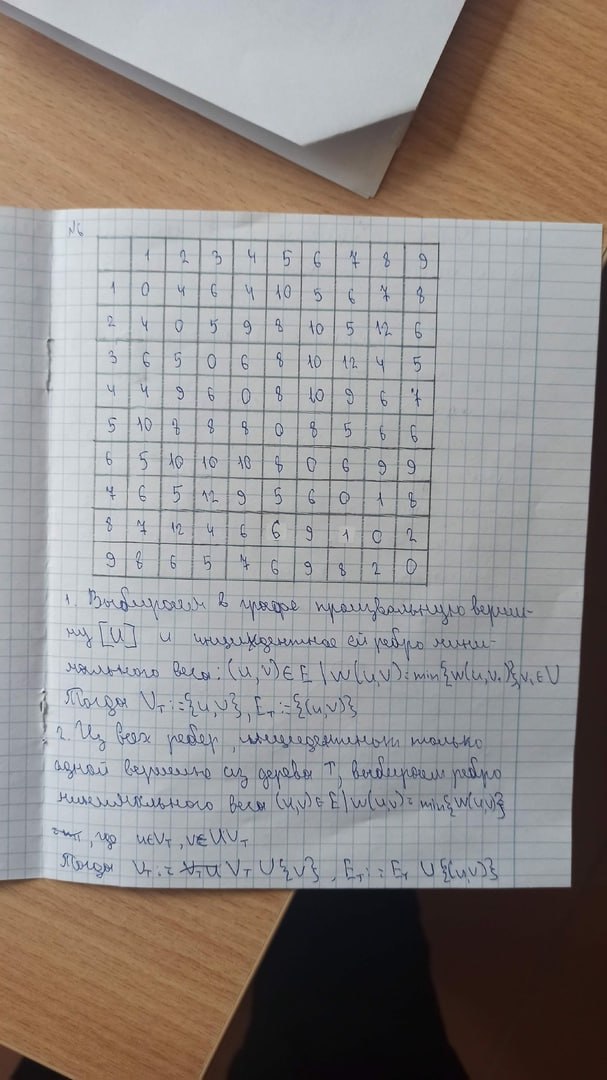 №6
1 2 3 4 5 6 7 8 9
1 0 4 6 4 10 5 6 7 8
2 4 0 5 9 8 10 5 12 6
3 6 5 0 6 8 10 12 4 5
4 4 9 6 0 8 10 9 6 7
5 10 8 8 8 0 8 5 6 6
6 5 10 10 10 8 0 6 9 9
7 6 5 12 9 5 6 0 1 8
8 7 12 4 6 6 9 1 0 2
9 8 6 5 7 6 9 8 2 0
1. Выбираем в графе произвольную верши-
ну [u] и инцидентное ей ребро мини-
мального веса: (u,v)∈E | w(u,v)=min{w(u,vᵢ)}, vᵢ∈V
Тогда V_T:={u,v}, E_T:={(u,v)}
2. Из всех ребер, инцидентных только
одной вершине из дерева T, выбираем ребро
минимального веса (u,v)∈E | w(u,v)=min{w(u,v)}
, где u∈V_T, v∈U\V_T
Тогда V_T:= V_T U{v}, E_T:= E_T U{(u,v)}